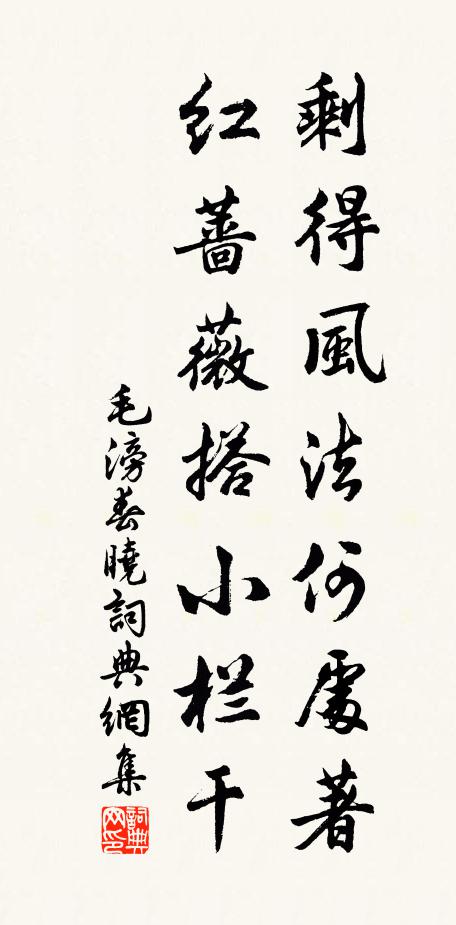 剩得風法何處著
紅薔薇搭小栏干
毛滂春曉詞典網集
詞典网印